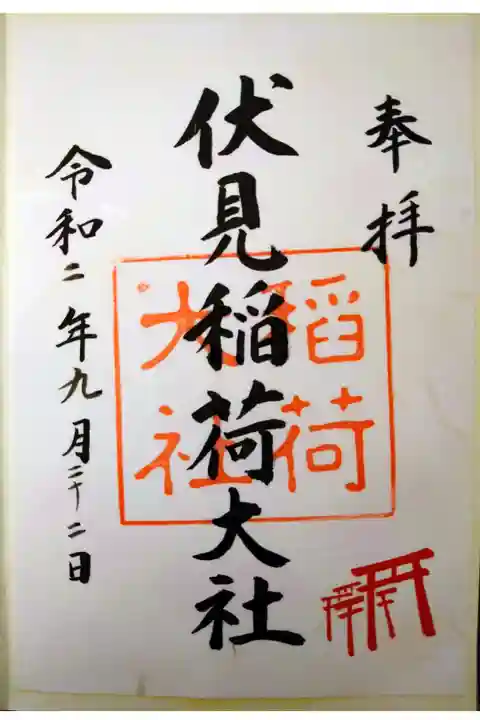 奉拝
伏見稲荷大社
稲荷
大社
令和二年九月二十二日